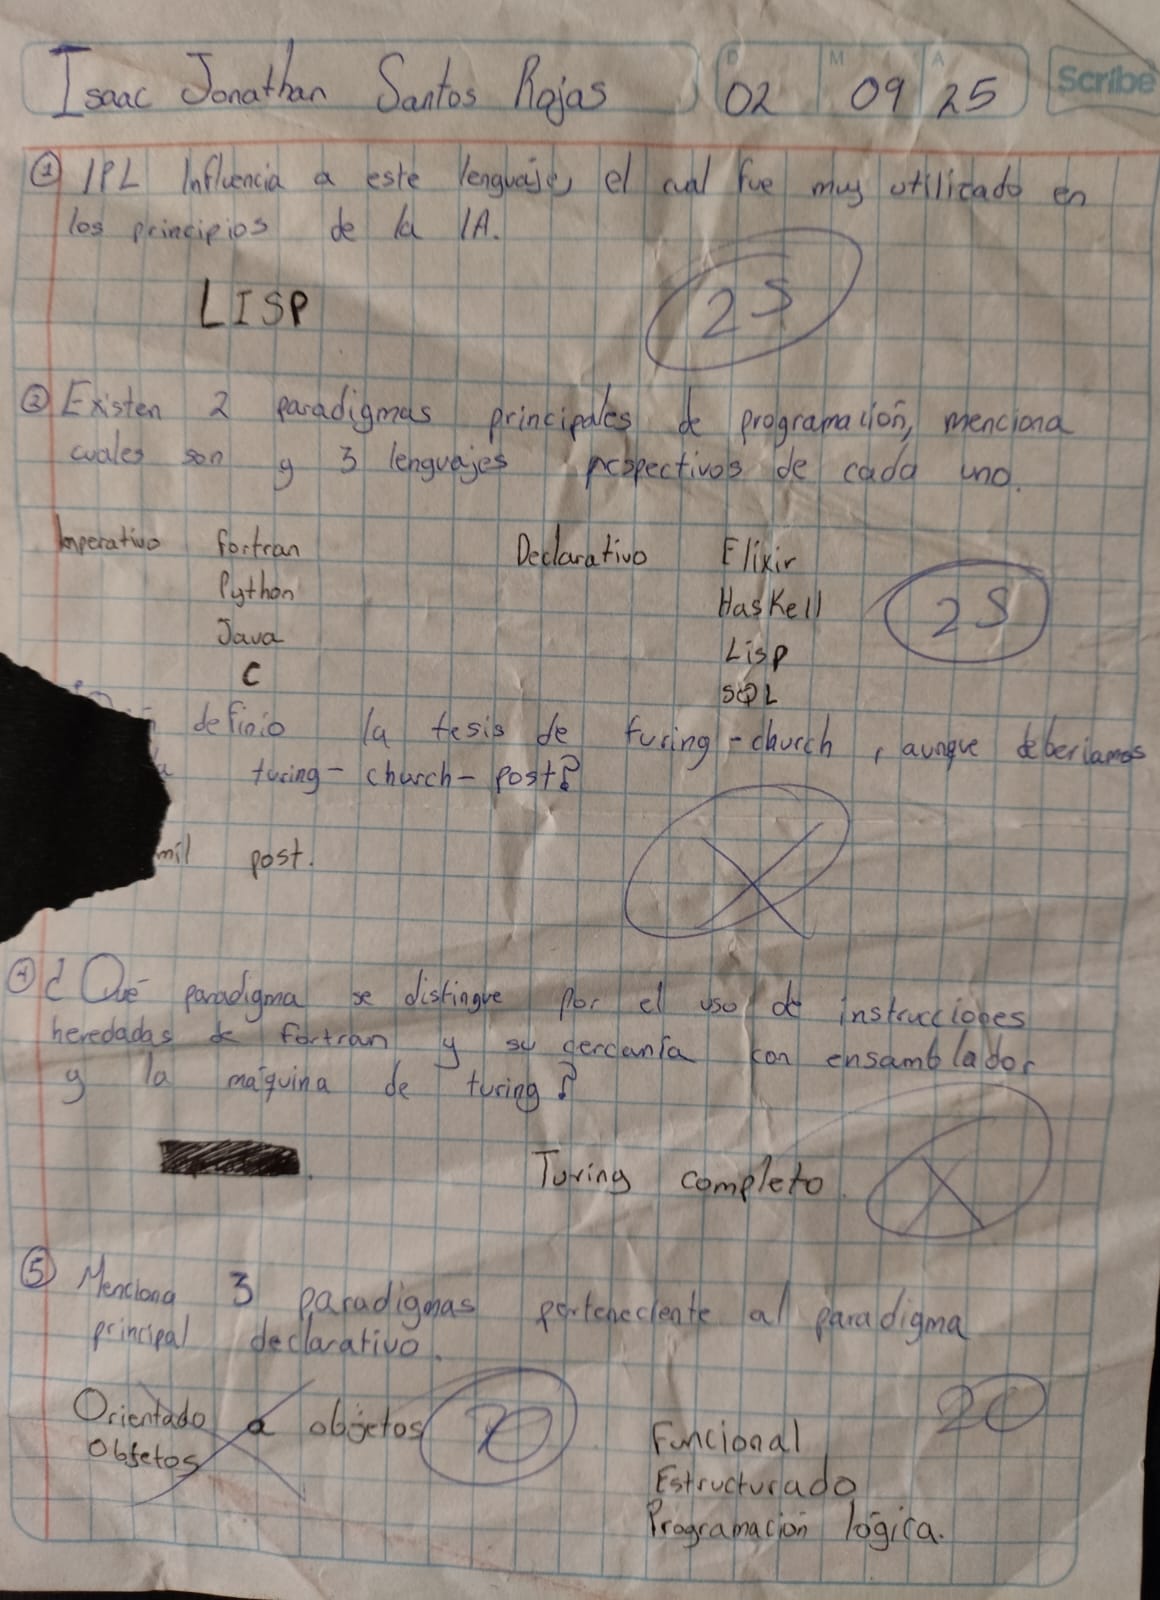 Isaac Jonathan Santos Rojas
D M A
02 09 25
Scribe
① IPL Influencia a este lenguaje, el cual fue muy utilizado en
los principios de la IA.
LISP
25
② Existen 2 paradigmas principales de programación, menciona
cuales son y 3 lenguajes respectivos de cada uno.
Imperativo Fortran Declarativo Elixir
Python Haskell
Java Lisp
C SQL
25
definio la tesis de turing-church, aunque deberiamos
turing-church-post?
mil post.
④ ¿Qué paradigma se distingue por el uso de instrucciones
heredadas de fortran y su cercanía con ensamblador
y la máquina de turing?
Turing completo.
⑤ Menciona 3 paradigmas perteneciente al paradigma
principal declarativo.
Orientado a objetos
Objetos
20
20
Funcional
Estructurado
Programación lógica.